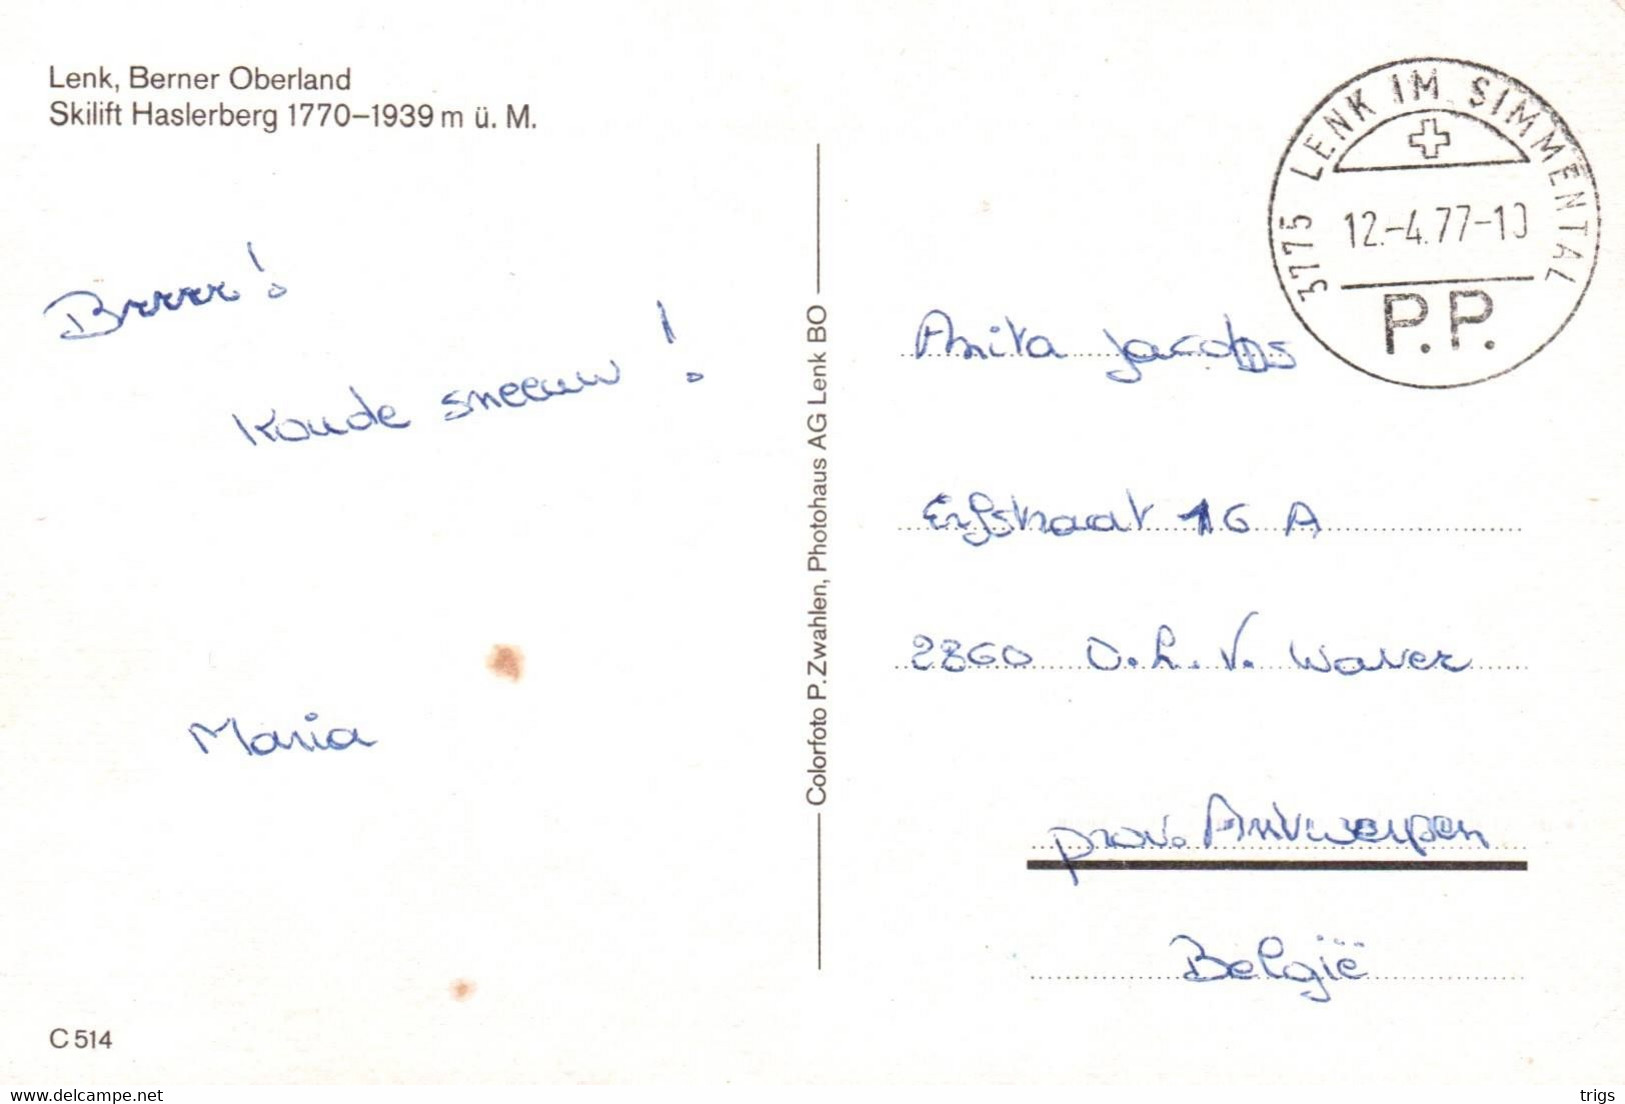 Lenk, Berner Oberland
Skilift Haslerberg 1770–1939 m ü. M.
Brrrr!
Koude sneeuw!
Maria
C 514
Colorfoto P. Zwahlen, Photohaus AG Lenk BO
3775 LENK IM SIMMENTAL
12.-4.77-10
P.P.
Anita Jacobs
Erfstraat 16 A
2860 O.L.V. Waver
prov. Antwerpen
België
www.delcampe.net
trigs